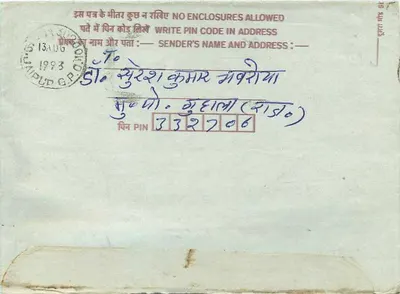 इस पत्र के भीतर कुछ न रखिए NO ENCLOSURES ALLOWED
पते में पिन कोड लिखें WRITE PIN CODE IN ADDRESS
का नाम और पता :— SENDER'S NAME AND ADDRESS :—
13 AUG
1993
G.P.O.
डॉ० सुरेश कुमार
मु० पो० गुहाला (राज०)
पिन PIN 332706